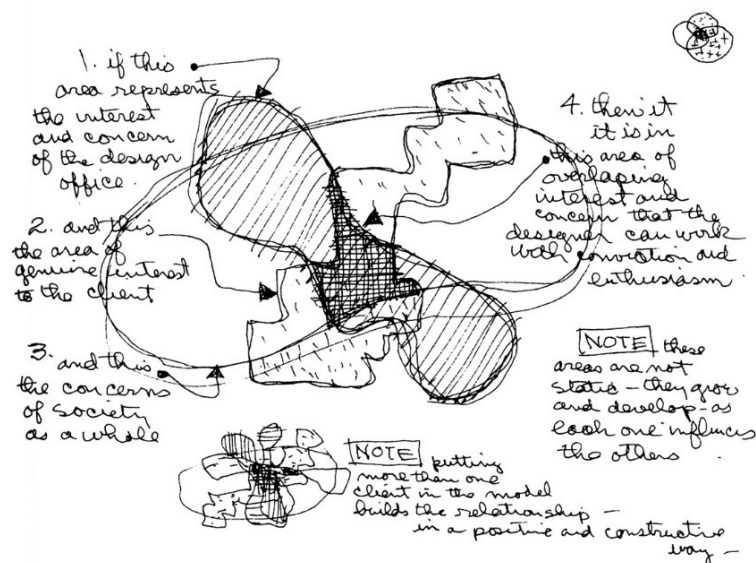 1. if this
area represents
the interest
and concern
of the design
office.
2. and this
the area of
genuine interest
to the client
3. and this
the concerns
of society
as a whole
4. then it
it is in
this area of
overlaping
interest and
concern that the
designer can work
with conviction and
enthusiasm
NOTE these
areas are not
static – they grow
and develop – as
each one influences
the others.
NOTE putting
more than one
client in the model
builds the relationship –
in a positive and constructive
way –